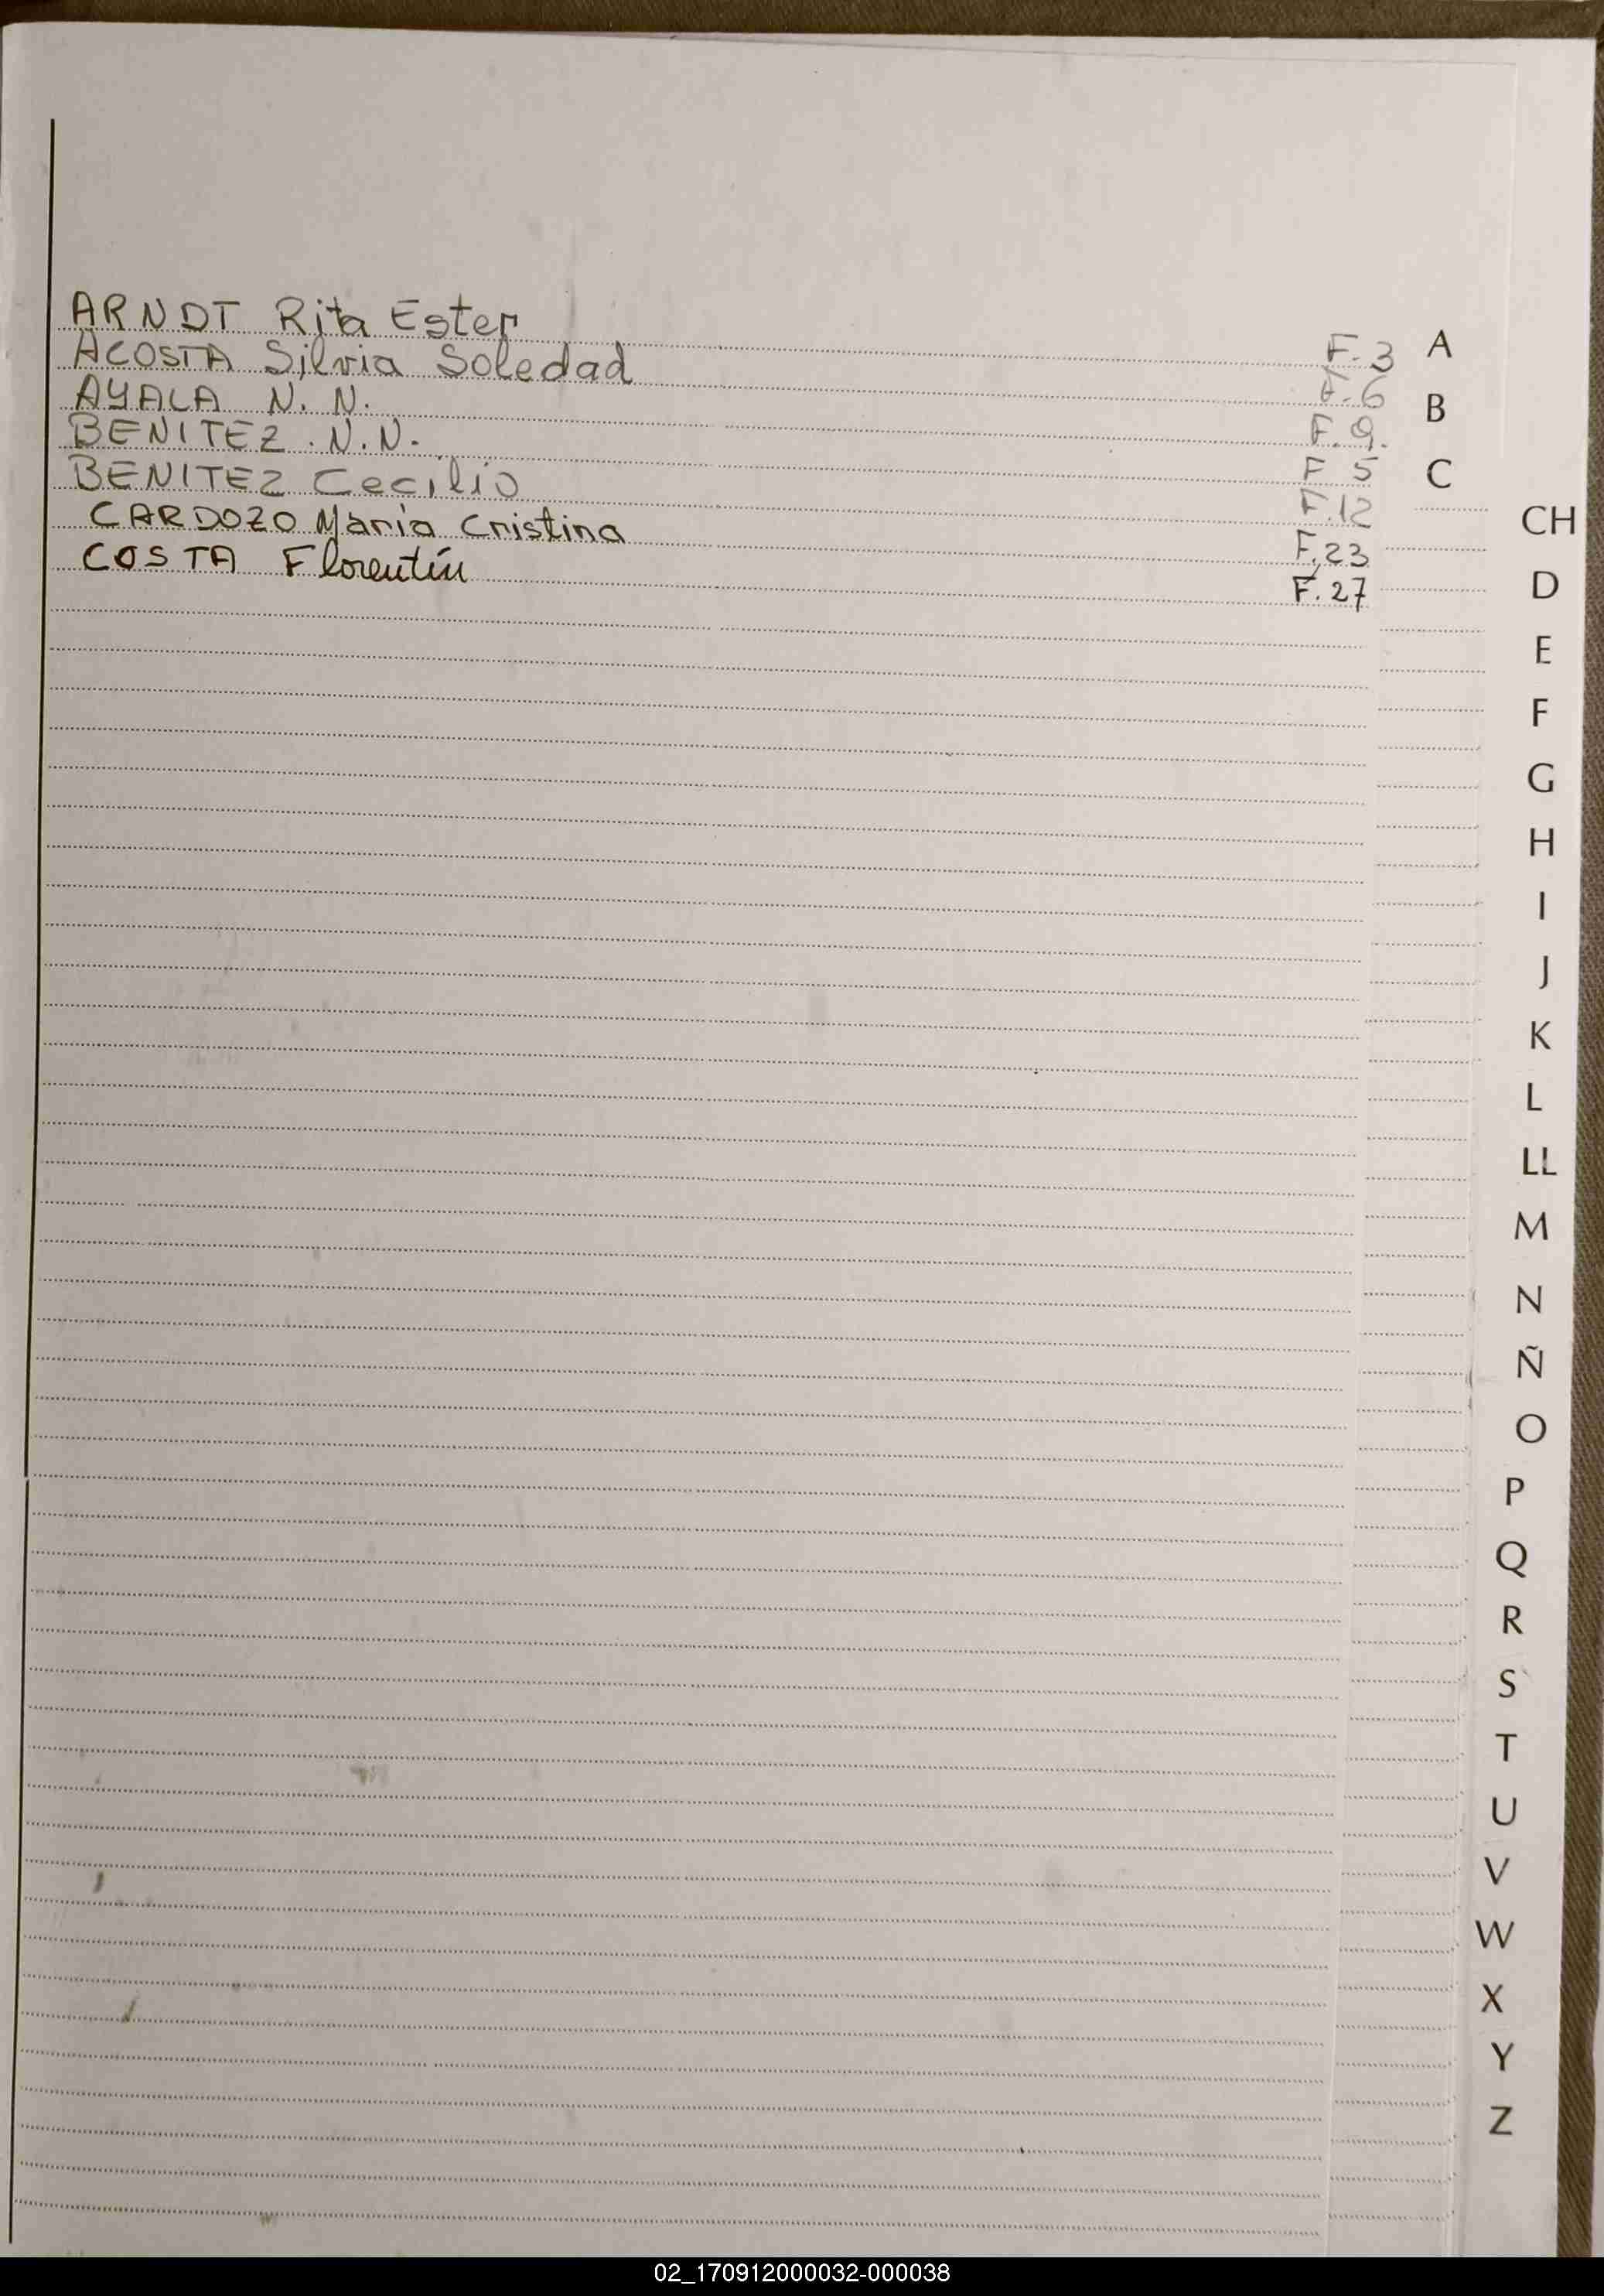 ARNDT Rita Ester F. 3
ACOSTA Silvia Soledad F. 6
AYALA N. N. F. 9.
BENITEZ . N. N. F 5
BENITEZ Cecilio F. 12
CARDOZO María Cristina F. 23
COSTA Florentín F. 27
A
B
C
CH
D
E
F
G
H
I
J
K
L
LL
M
N
Ñ
O
P
Q
R
S
T
U
V
W
X
Y
Z
02_170912000032-000038